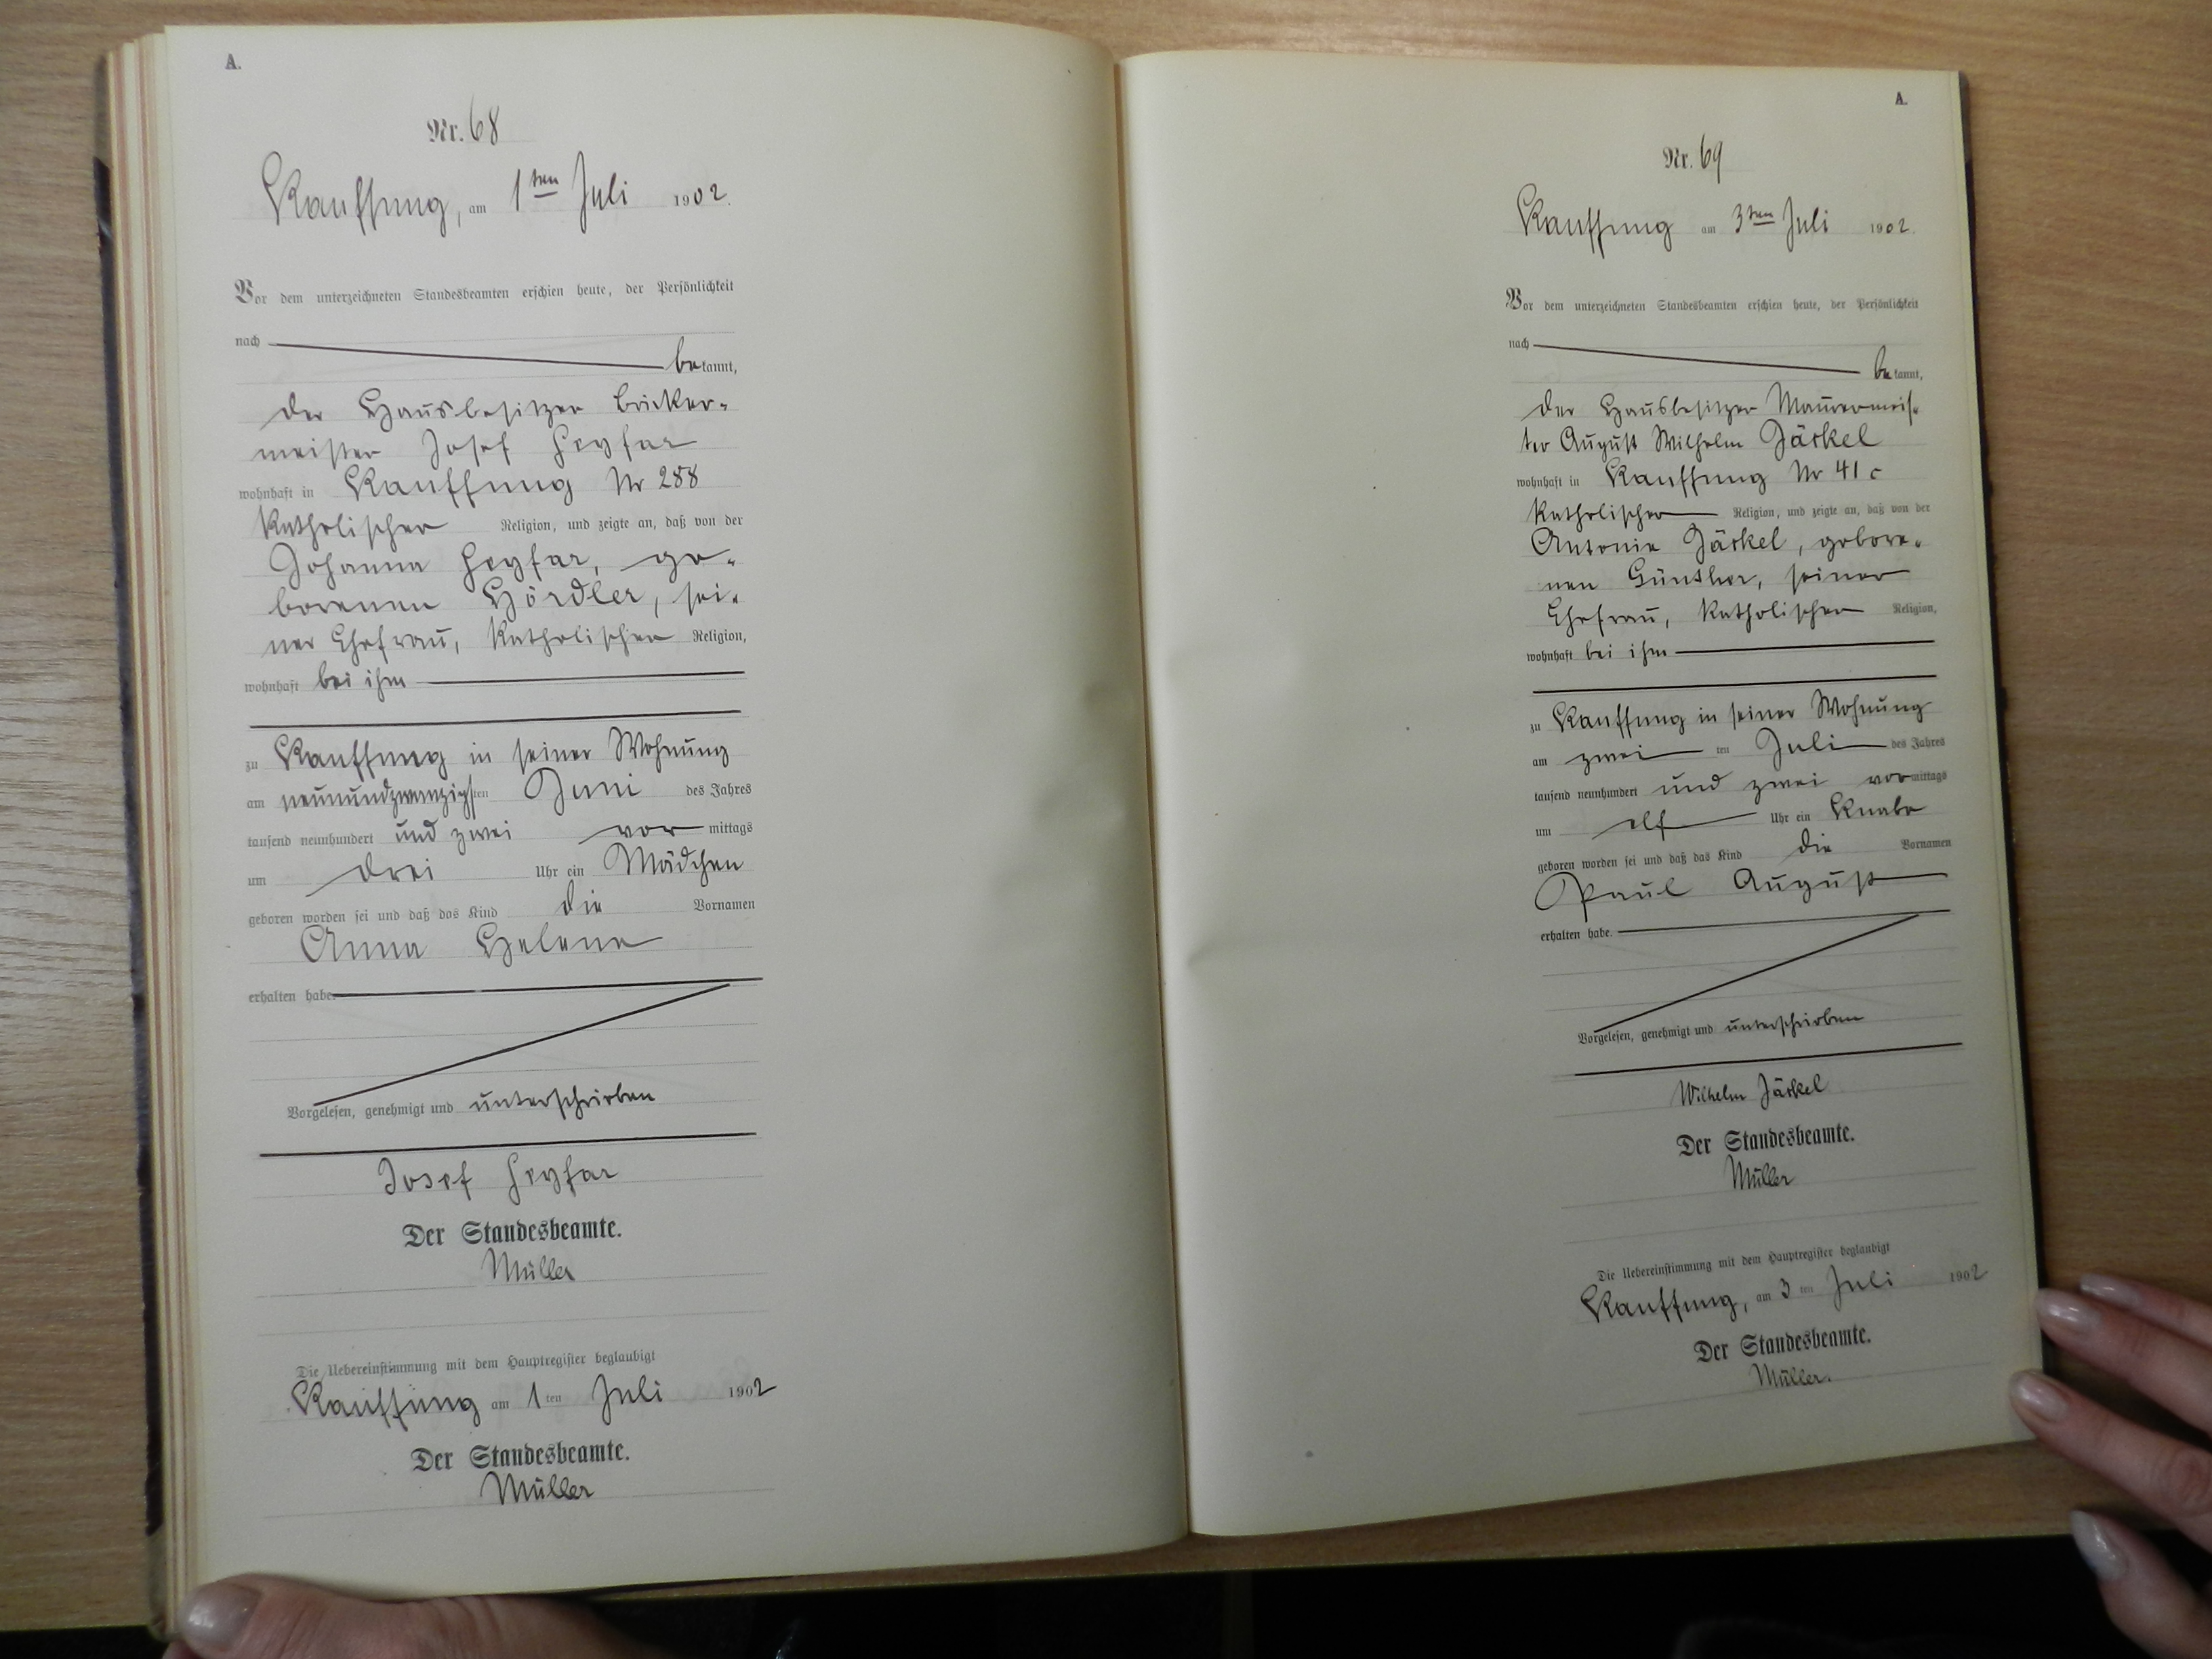 A.
Nr. 68
Kauffung, am 1ten Juli 1902.
Vor dem unterzeichneten Standesbeamten erschien heute, der Persönlichkeit
nach
bekannt,
der Hausbesitzer Bäcker-
meister Josef
wohnhaft in Kauffung Nr 288
katholischer Religion, und zeigte an, daß von der
Johanna ge-
borenen Hördler, sei-
ner Ehefrau, katholischen Religion,
wohnhaft bei ihm
zu Kauffung in seiner Wohnung
am neunundzwanzigsten Juni des Jahres
tausend neunhundert und zwei vormittags
um drei Uhr ein Mädchen
geboren worden sei und daß das Kind die Vornamen
Anna Helene
erhalten habe.
Vorgelesen, genehmigt und unterschrieben
Josef
Der Standesbeamte.
Müller
Die Uebereinstimmung mit dem Hauptregister beglaubigt
Kauffung am 1ten Juli 1902
Der Standesbeamte.
Müller
A.
Nr. 69
Kauffung am 3ten Juli 1902.
Vor dem unterzeichneten Standesbeamten erschien heute, der Persönlichkeit
nach
bekannt,
der Hausbesitzer Maurermeis-
ter August Wilhelm Jäckel
wohnhaft in Kauffung Nr 41 c
katholischer Religion, und zeigte an, daß von der
Antonie Jäckel, gebore-
nen Günther, seiner
Ehefrau, katholischen Religion,
wohnhaft bei ihm
zu Kauffung in seiner Wohnung
am zweiten Juli des Jahres
tausend neunhundert und zwei vormittags
um elf Uhr ein Knabe
geboren worden sei und daß das Kind die Vornamen
Paul August
erhalten habe.
Vorgelesen, genehmigt und unterschrieben
Wilhelm Jäckel
Der Standesbeamte.
Müller
Die Uebereinstimmung mit dem Hauptregister beglaubigt
Kauffung, am 3ten Juli 1902
Der Standesbeamte.
Müller.